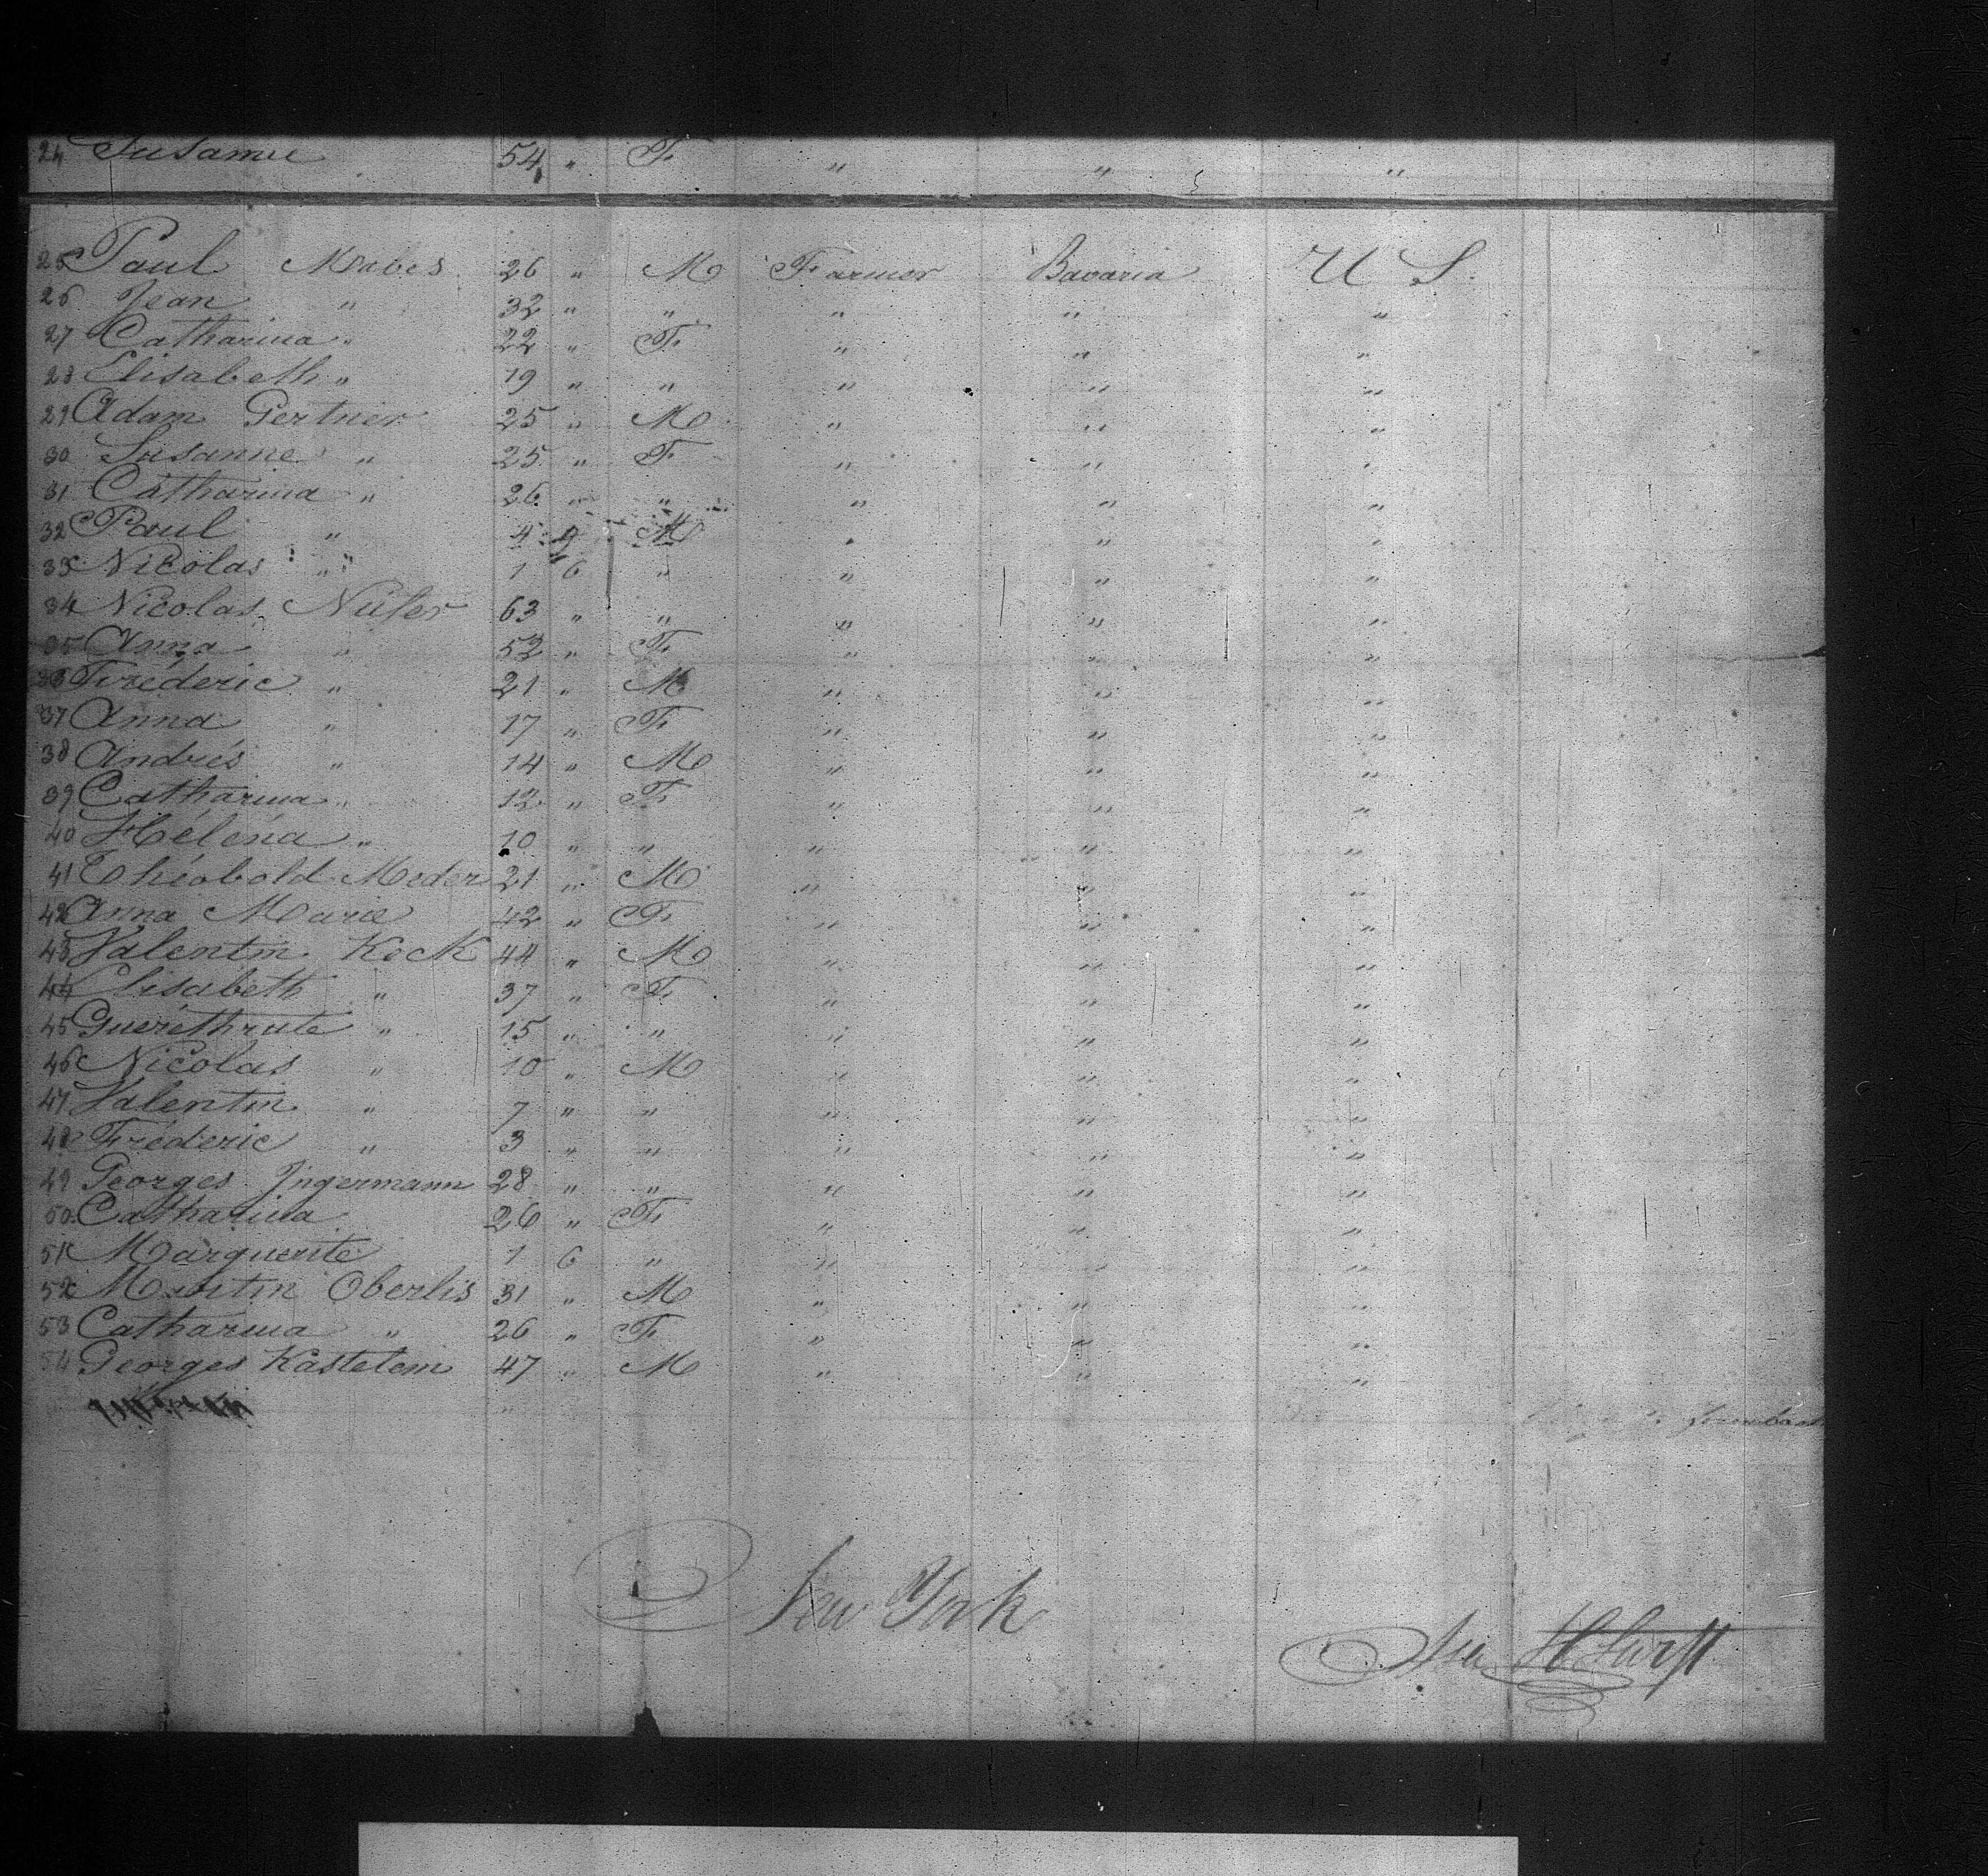 24 Susanne 54 " F " " "
25 Paul Mabes 26 " M Farmor Bavaria U S.
26 Jean " 32 " " " " "
27 Catharina " 22 " F " " "
28 Elisabeth " 19 " " " " "
29 Adam Gertner 25 " M " " "
30 Susanne " 25 " F " " "
31 Catharina " 26 " " " " "
32 Paul " 4 9 M " " "
33 Nicolas " 1 6 " " " "
34 Nicolas Nüfer 63 " " " " "
35 Anna " 52 " F " " "
36 Fréderic " 21 " M " " "
37 Anna " 17 " F " " "
38 Andrés " 14 " M " " "
39 Catharina " 12 " F " " "
40 Héléna " 10 " " " " "
41 Théobold Meder 21 " M " " "
42 Anna Marie 42 " F " " "
43 Valentin Keck 44 " M " " "
44 Elisabeth " 37 " F " " "
45 Gueréthrute " 15 " " " " "
46 Nicolas " 10 " M " " "
47 Valentin " 7 " " " " "
48 Fréderic " 3 " " " " "
49 Georges Ingermann 28 " " " " "
50 Catharina 26 " F " " "
51 Marguerite 1 6 " " " "
52 Martin Oberlis 31 " M " " "
53 Catharina " 26 " F " " "
54 Georges Kastelem 47 " M " " "
New York